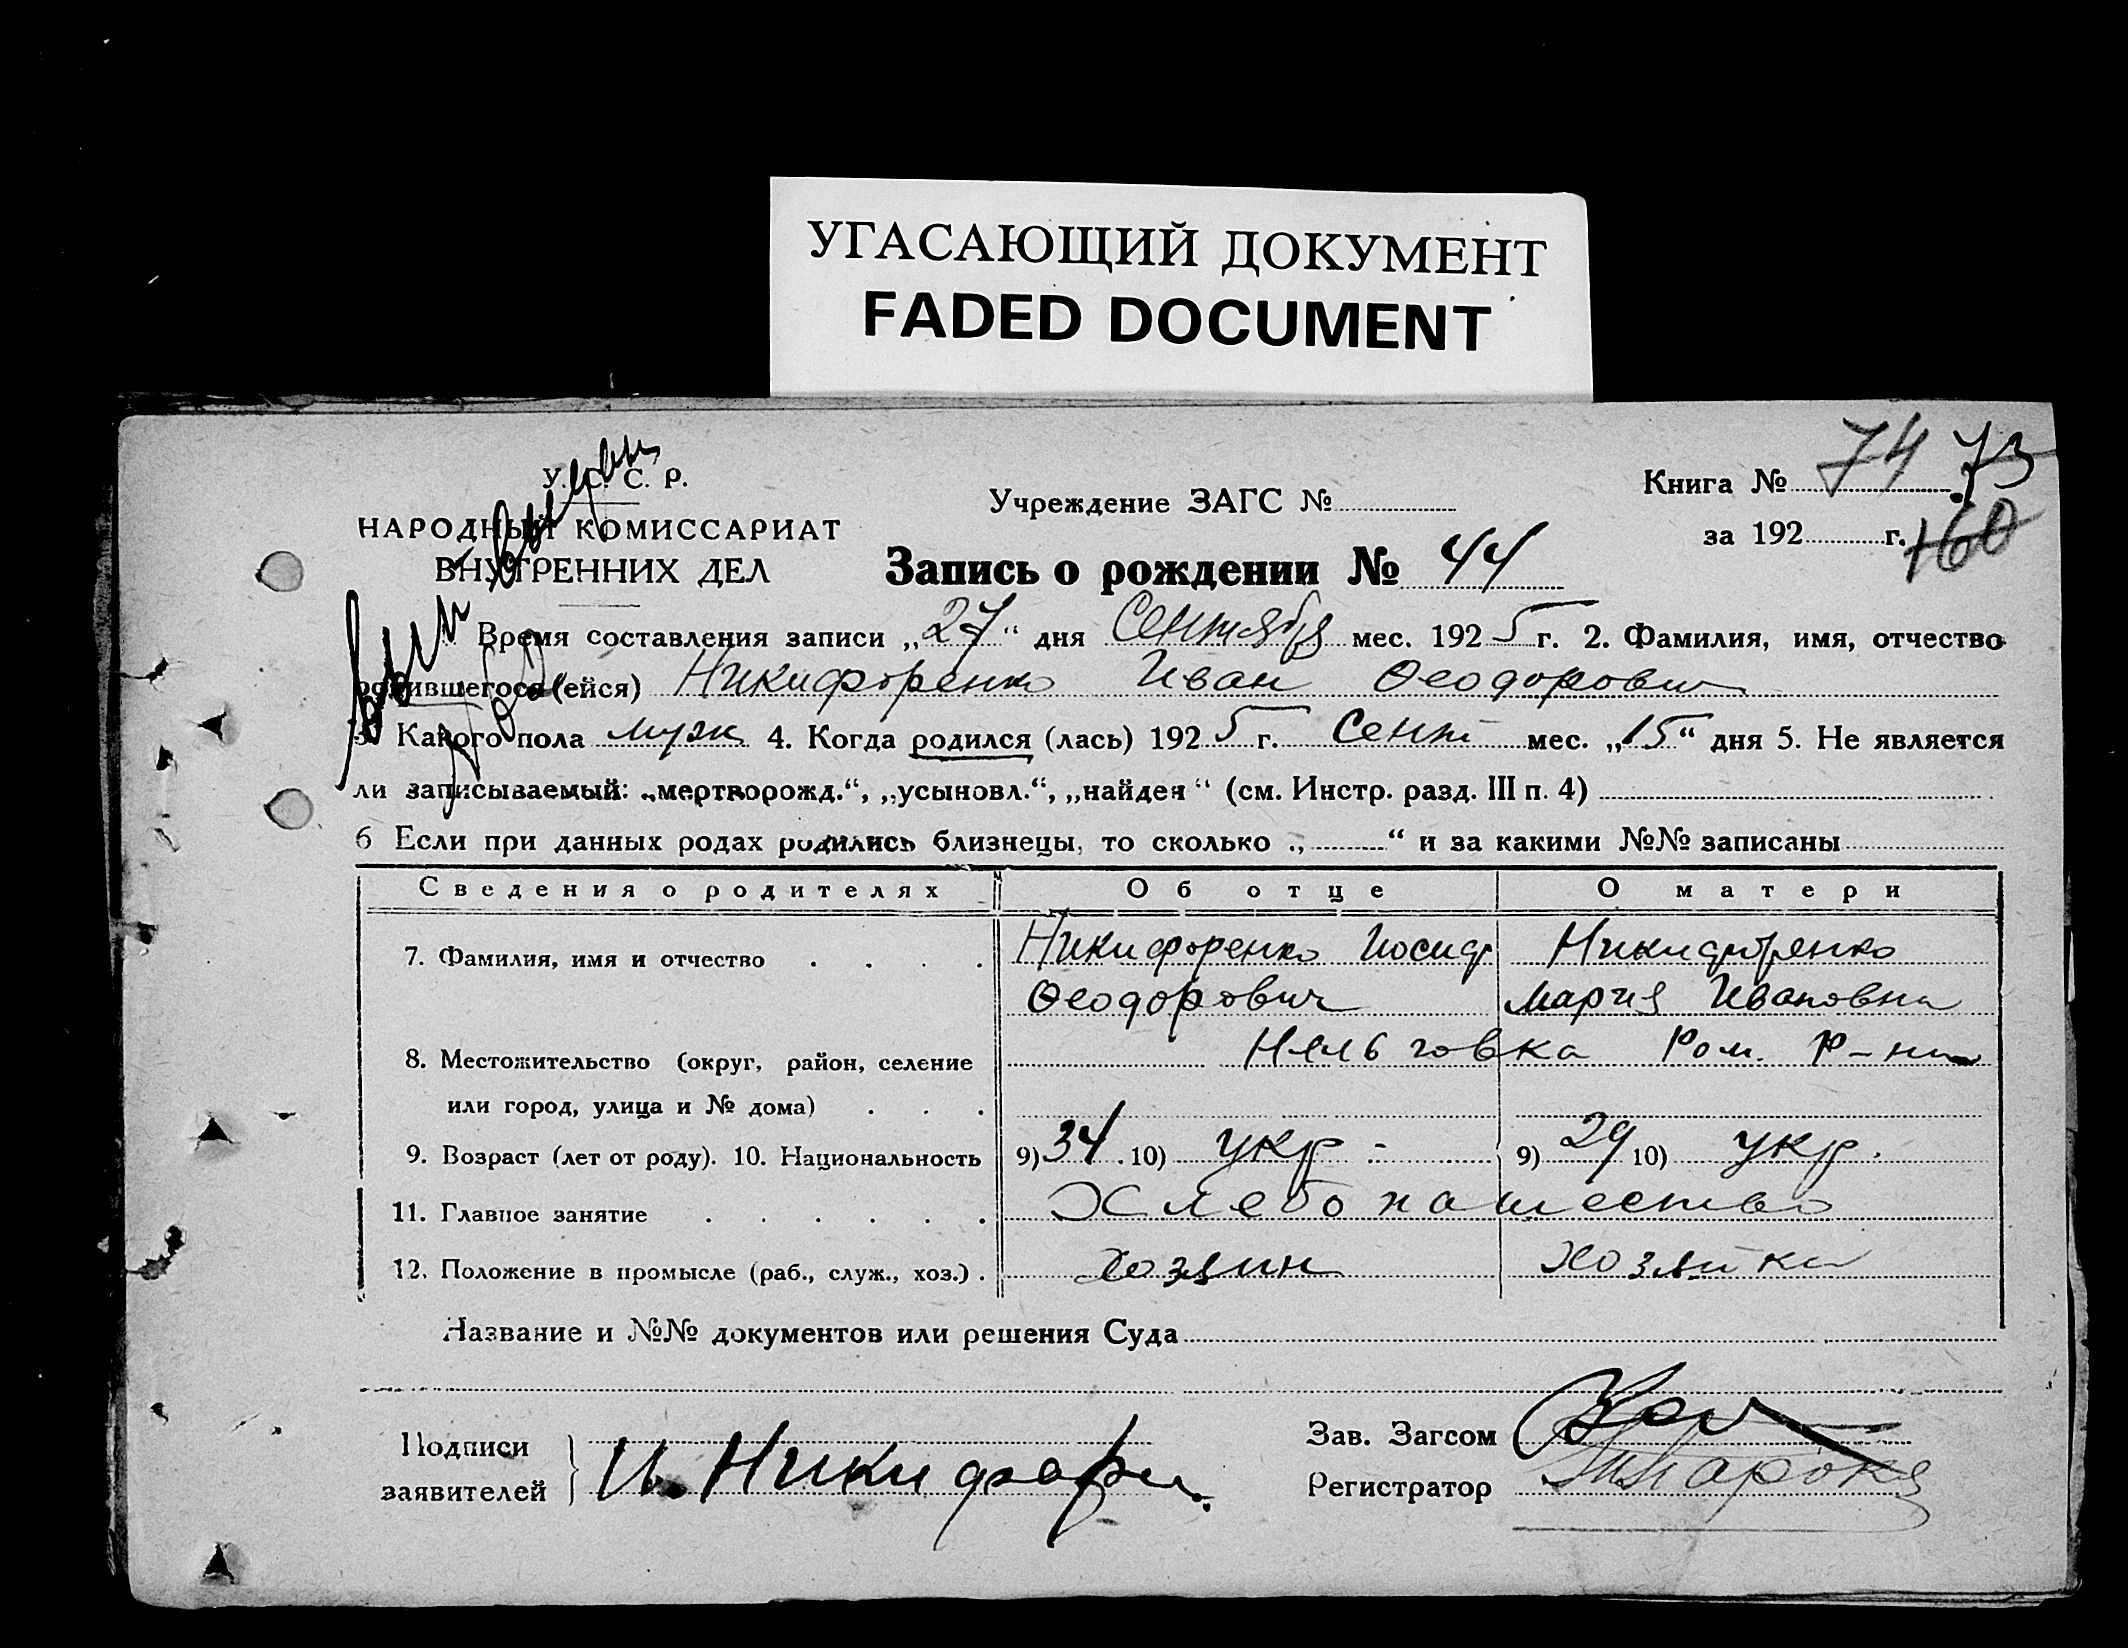 УГАСАЮЩИЙ ДОКУМЕНТ
FADED DOCUMENT
У. С. С. Р.
НАРОДНЫЙ КОМИССАРИАТ
ВНУТРЕННИХ ДЕЛ
Учреждение ЗАГС №
Книга № 74 73
за 192 г. 160
Запись о рождении № 44
Время составления записи „27“ дня Сентября мес. 1925 г. 2. Фамилия, имя, отчество
родившегося (ейся) Никифоренко Иван Ѳеодорович
3. Какого пола муж 4. Когда родился (лась) 1925 г. Сент мес. „15“ дня 5. Не является
ли записываемый: „мертворожд.“, „усыновл.“, „найден“ (см. Инстр. разд. III п. 4)
6 Если при данных родах родились близнецы, то сколько „ “ и за какими №№ записаны
Сведения о родителях Об отце О матери
7. Фамилия, имя и отчество Никифоренко Иосиф Никифоренко
Ѳеодорович Мария Ивановна
8. Местожительство (округ, район, селение Ром. р-на
или город, улица и № дома)
9. Возраст (лет от роду). 10. Национальность 9) 34 10) укр - 9) 29 10) укр.
11. Главное занятие Хлебопашество
12. Положение в промысле (раб., служ., хоз.) Хозяин Хозяйка
Название и №№ документов или решения Суда
Подписи
заявителей И. Никифор
Зав. Загсом
Регистратор